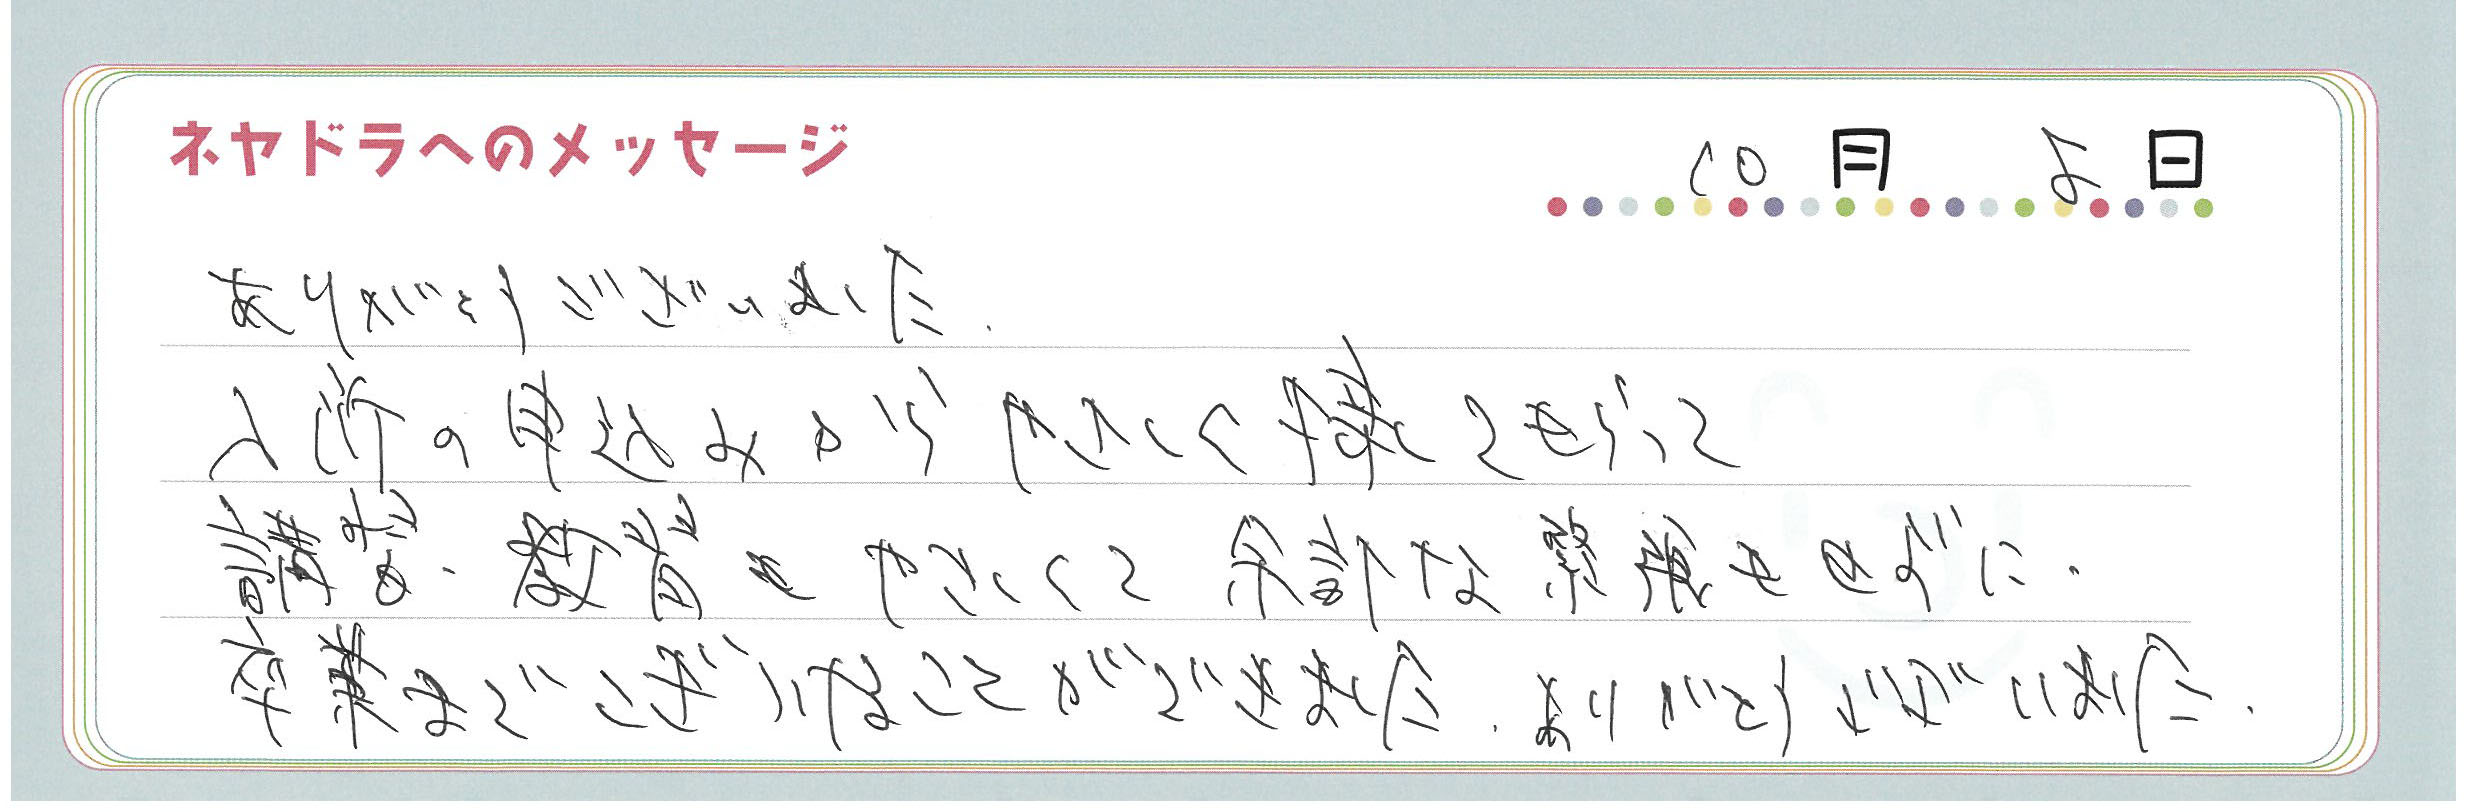 ネヤドラへのメッセージ 10月 日
ありがとうございました.
入所の申込みからやさしく接してもらって
講習・教習もやさしくて余計な緊張もせずに.
卒業までこぎつけることができました. ありがとうございました.